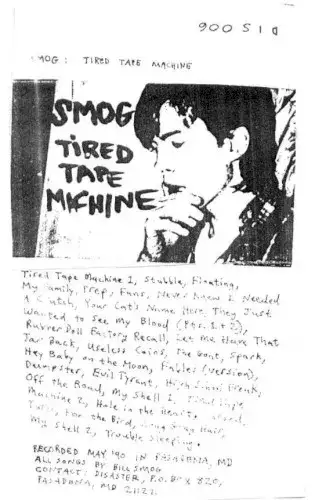 DIS 006
SMOG: TIRED TAPE MACHINE
SMOG
TIRED
TAPE
MACHINE
Tired Tape Machine 1, Stubble, Floating,
My Family, Prep, Fans, Never Knew I Needed
A Clutch, Your Cat's Name Here, They Just
Wanted to See My Blood (Pts. 1+2),
Rubber Doll Factory Recall, Let Me Have That
Jar Back, Useless Coins, The Goat, Spark,
Hey Baby on the Moon, Fables (version),
Dempster, Evil Tyrant, High School Freak,
Off the Road, My Shell 1, Tired Tape
Machine 2, Hole in the Heart,
For the Bird, Long Gray Hair,
My Shell 2, Trouble Sleeping.
RECORDED MAY '90 IN PASADENA, MD
ALL SONGS BY BILL SMOG
CONTACT: DISASTER, P.O. BOX 820,
PASADENA, MD 21122.